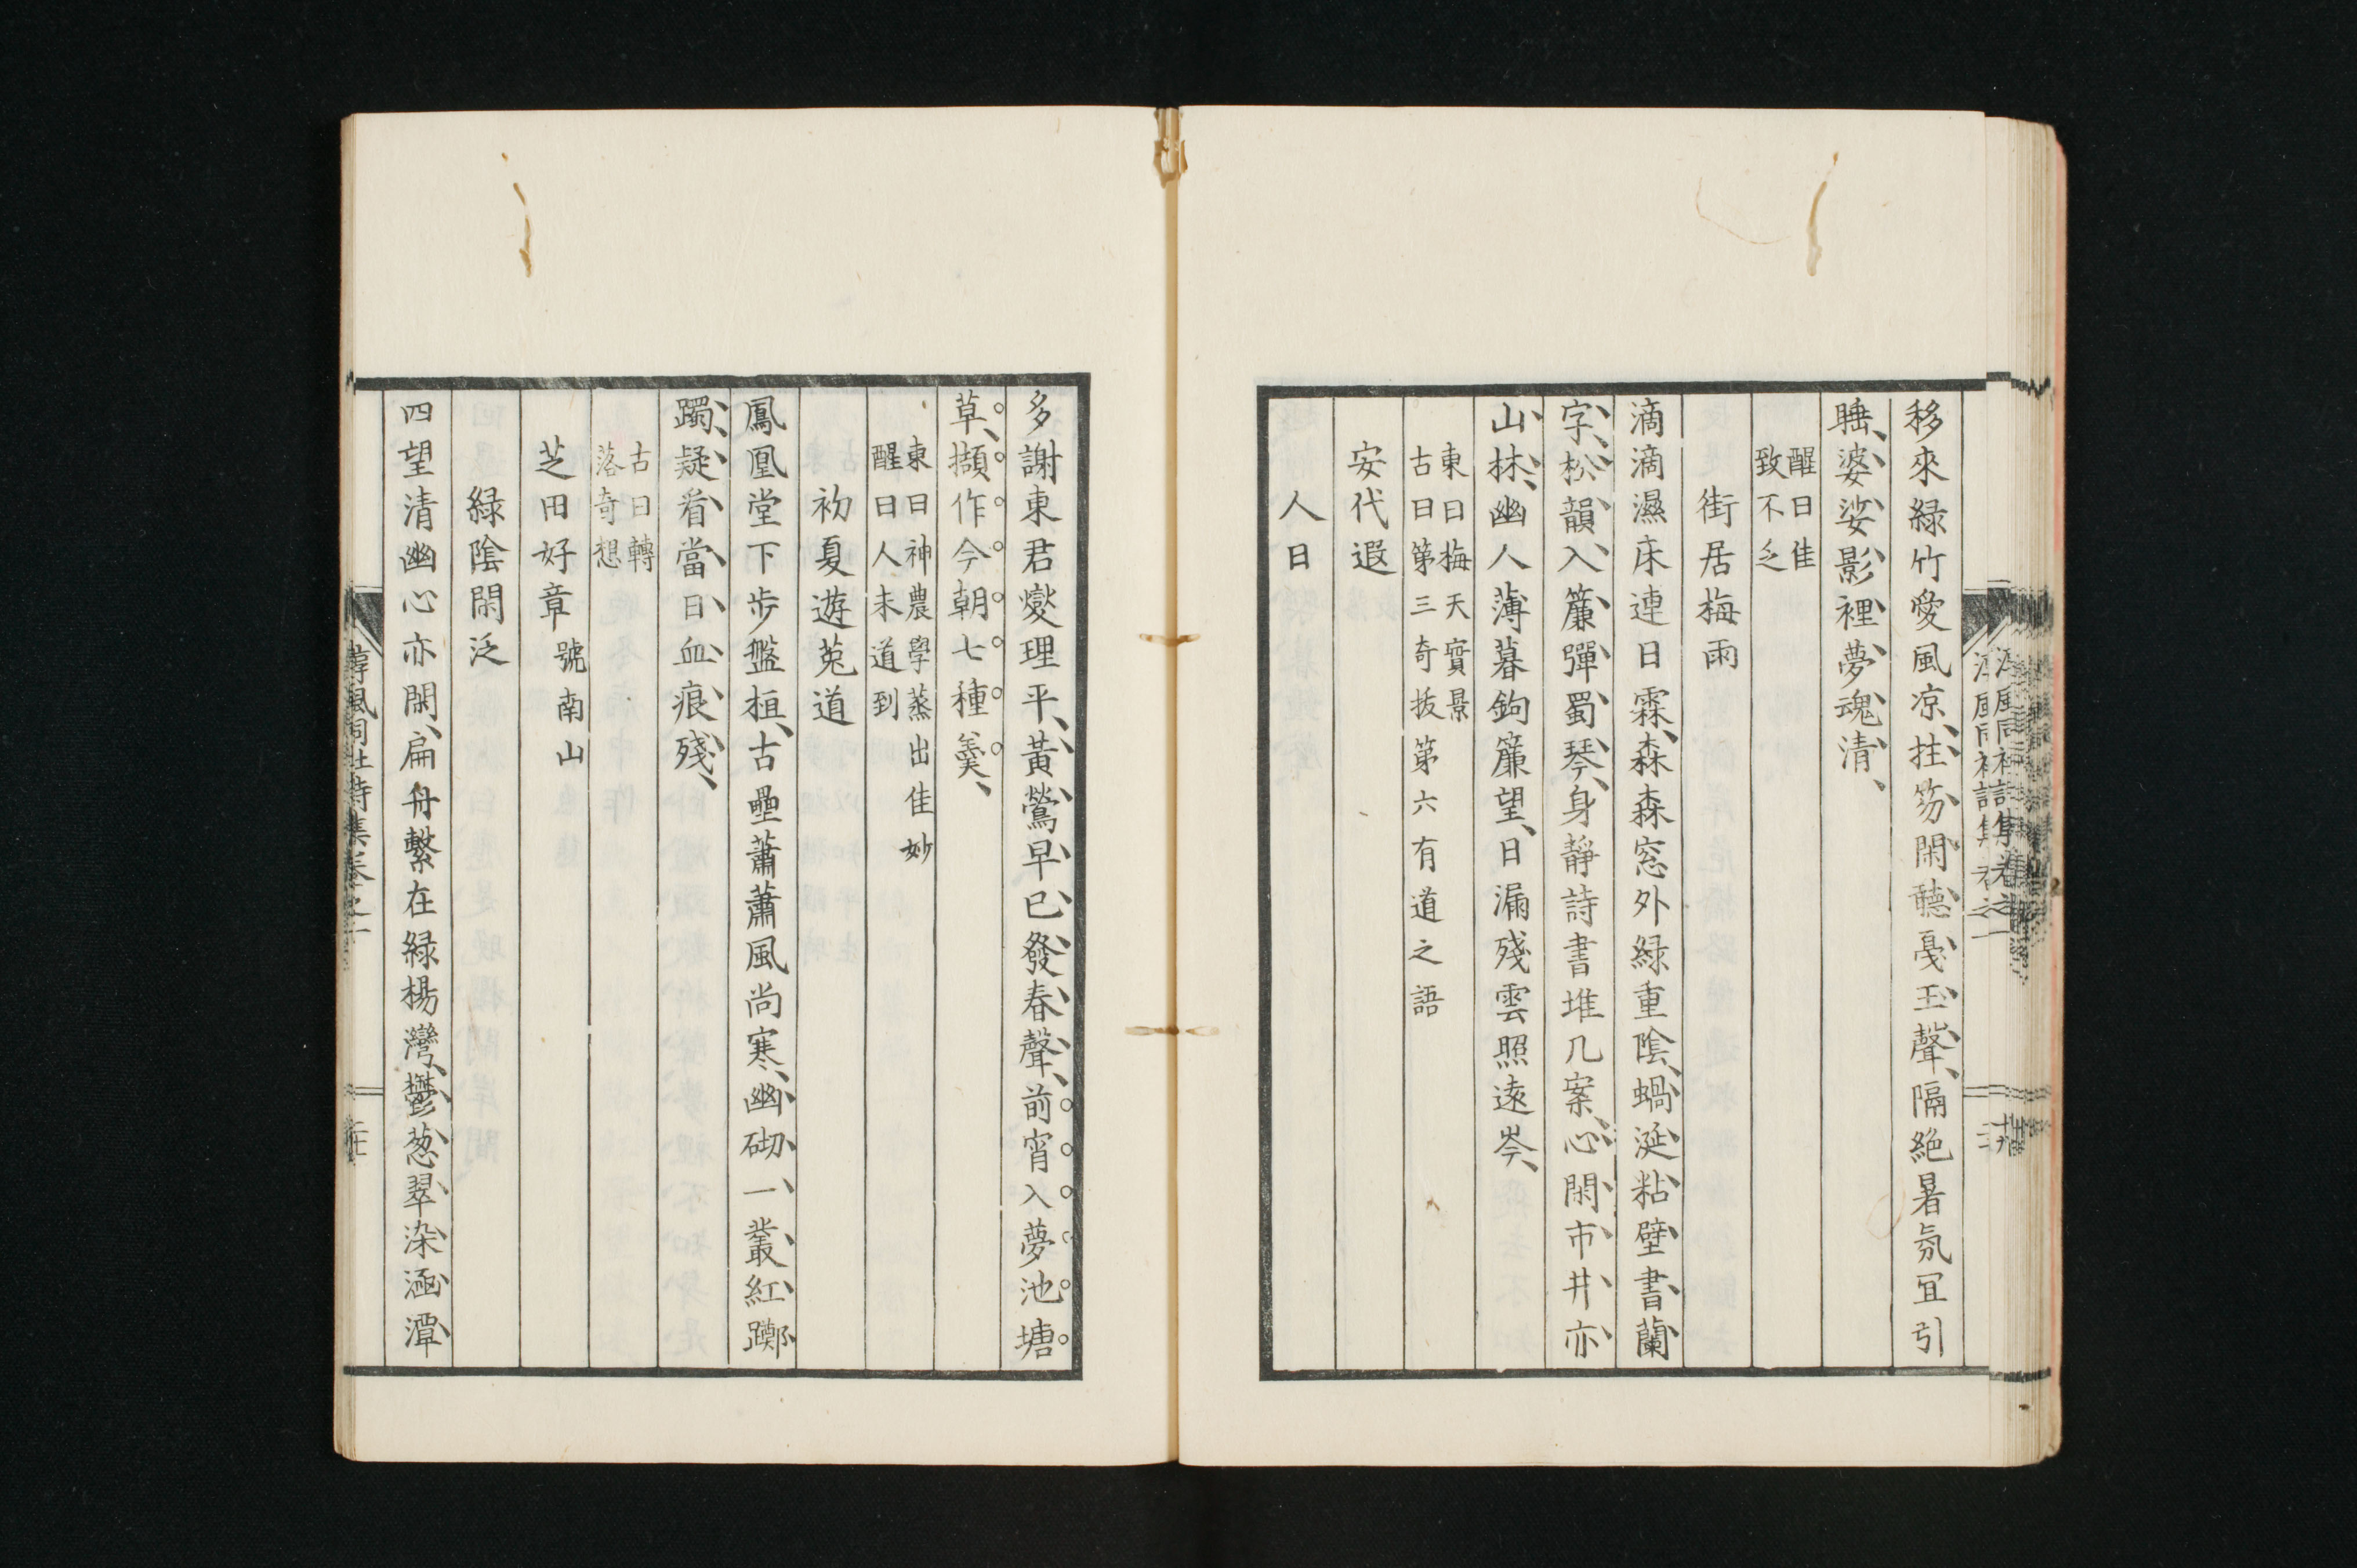 移來緑竹愛風凉、拄笻閑聽戞玉聲、隔絶暑氛冝引
睡、婆娑影裡夢魂清、
醒曰佳
致不乏
街居梅雨
滴滴濕床連日霖、森森窓外緑重陰、蝸涎粘壁書蘭
字、松韻入簾彈蜀琴、身靜詩書堆几案、心閑市井亦
山林、幽人薄暮鉤簾望、日漏殘雲照遠岑、
東曰梅天實景
古曰第三奇拔第六有道之語
安代遐
人日
多謝東君爕理平、黃鶯早已發春聲、前宵入夢池塘
草、擷作今朝七種羹、
東曰神農學蒸出佳妙
醒曰人未道到
初夏遊菟道
鳳凰堂下步盤桓、古壘蕭蕭風尚寒、幽砌一叢紅躑
躅、疑看當日血痕殘、
古曰轉
落奇想
芝田好章 號南山
緑陰閑泛
四望清幽心亦閑、扁舟繫在緑楊灣、鬱葱翠染涵潭